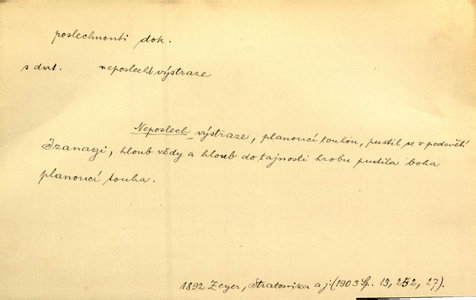 poslechnouti dok.
z dvt. neposlechl výstraze
Neposlech výstraze, planoucí touhou, pustil se v podsvětí
Izanagi, hloub vždy a hloub do tajnosti hrobu pudila boha
planoucí touha.
1892 Zeyer, Stratonika a j. (1903 Sp. 13, 252, 27).